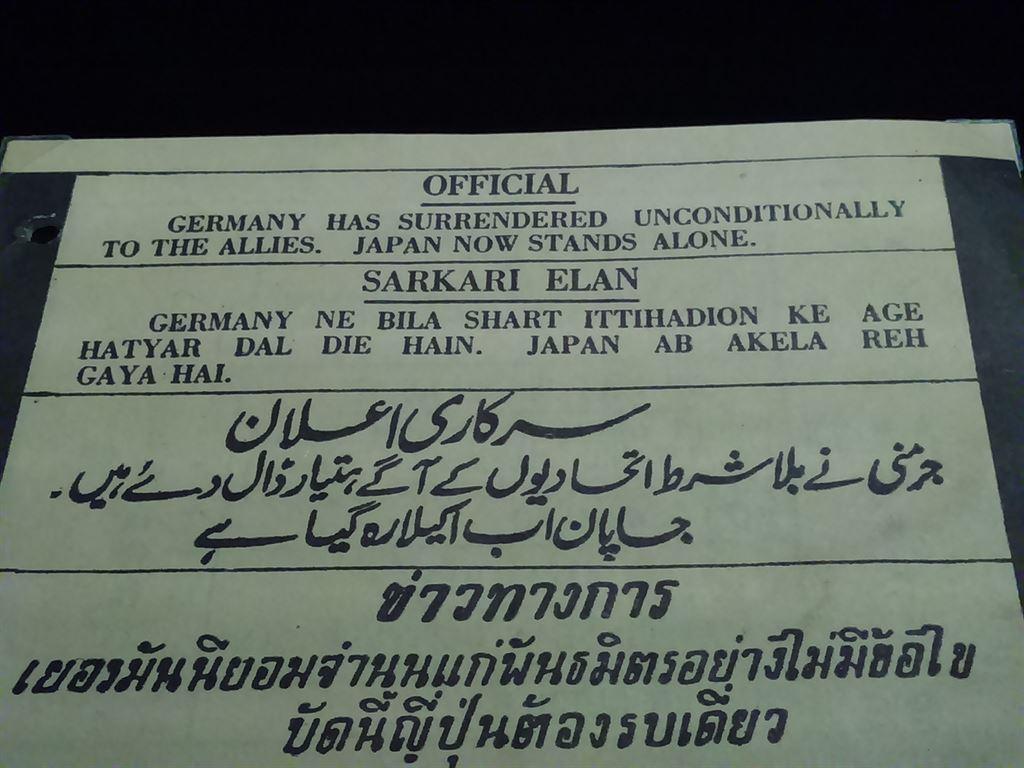 OFFICIAL
GERMANY HAS SURRENDERED UNCONDITIONALLY
TO THE ALLIES. JAPAN NOW STANDS ALONE.
SARKARI ELAN
GERMANY NE BILA SHART ITTIHADION KE AGE
HATYAR DAL DIE HAIN. JAPAN AB AKELA REH
GAYA HAI.
سرکاری اعلان
جرمنی نے بلا شرط اتحادیوں کے آگے ہتیار ڈال دئے ہیں۔
جاپان اب اکیلا رہ گیا ہے
ข่าวทางการ
เยอรมันนียอมจำนนแก่พันธมิตรอย่างไม่มีข้อไข
บัดนี้ญี่ปุ่นต้องรบเดี่ยว